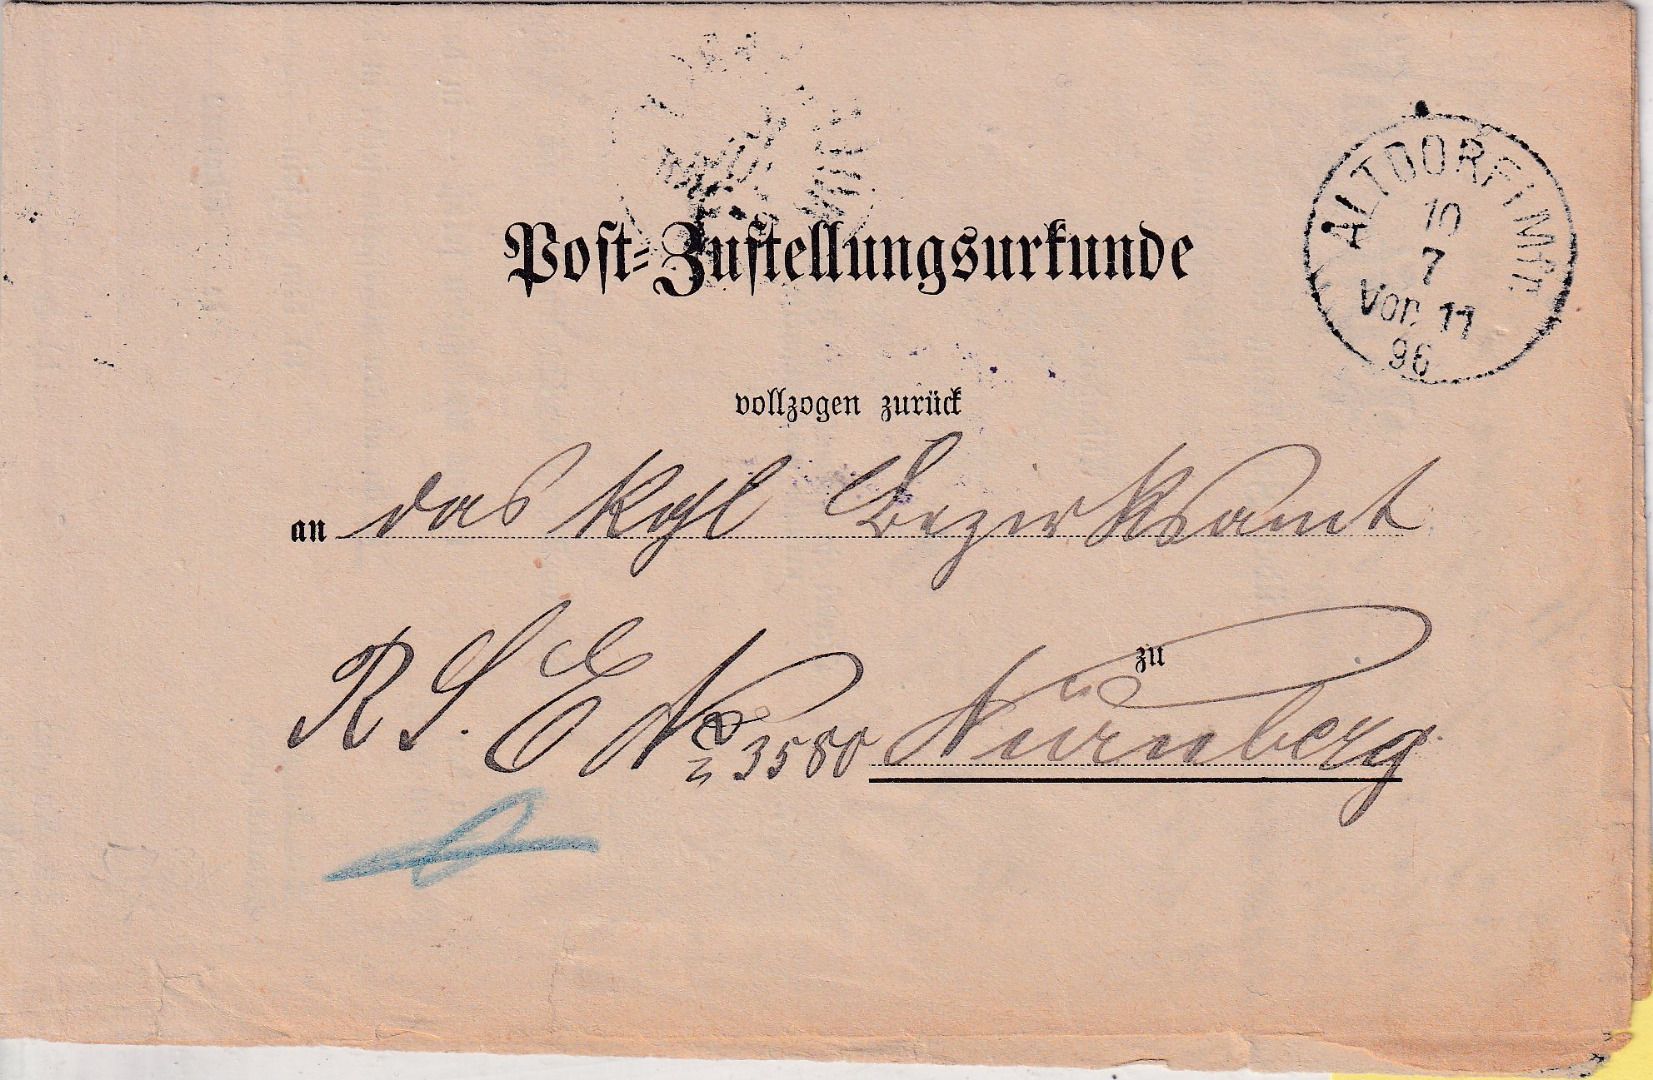 ALTDORF I Mfr.
10
7
Vor. 11
96
Post-Zustellungsurkunde
vollzogen zurück
an das Kgl Bezirksamt
zu
R. S. E. No 3580 Nürnberg